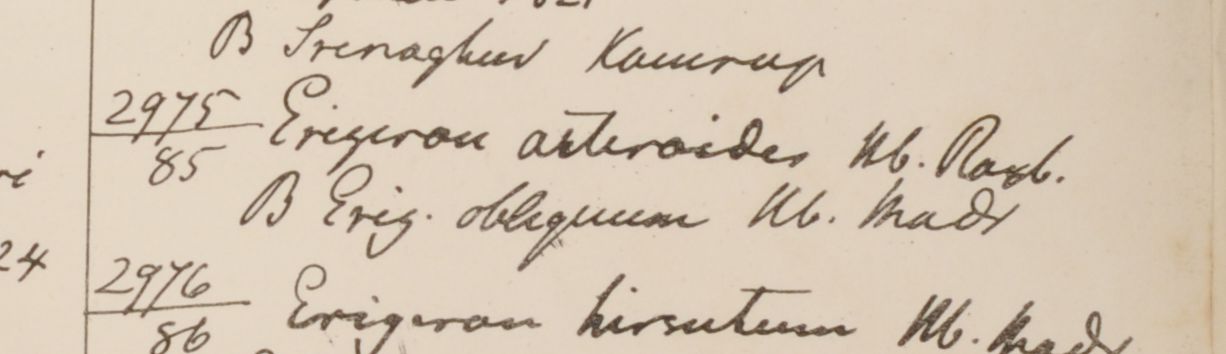 B Srenaghur Kamrup
2975 Erigeron asteroides Hb. Roxb.
85
B Erig. obliquum Hb. Madr
2976 Erigeron hirsutum Hb. Madr
86
24